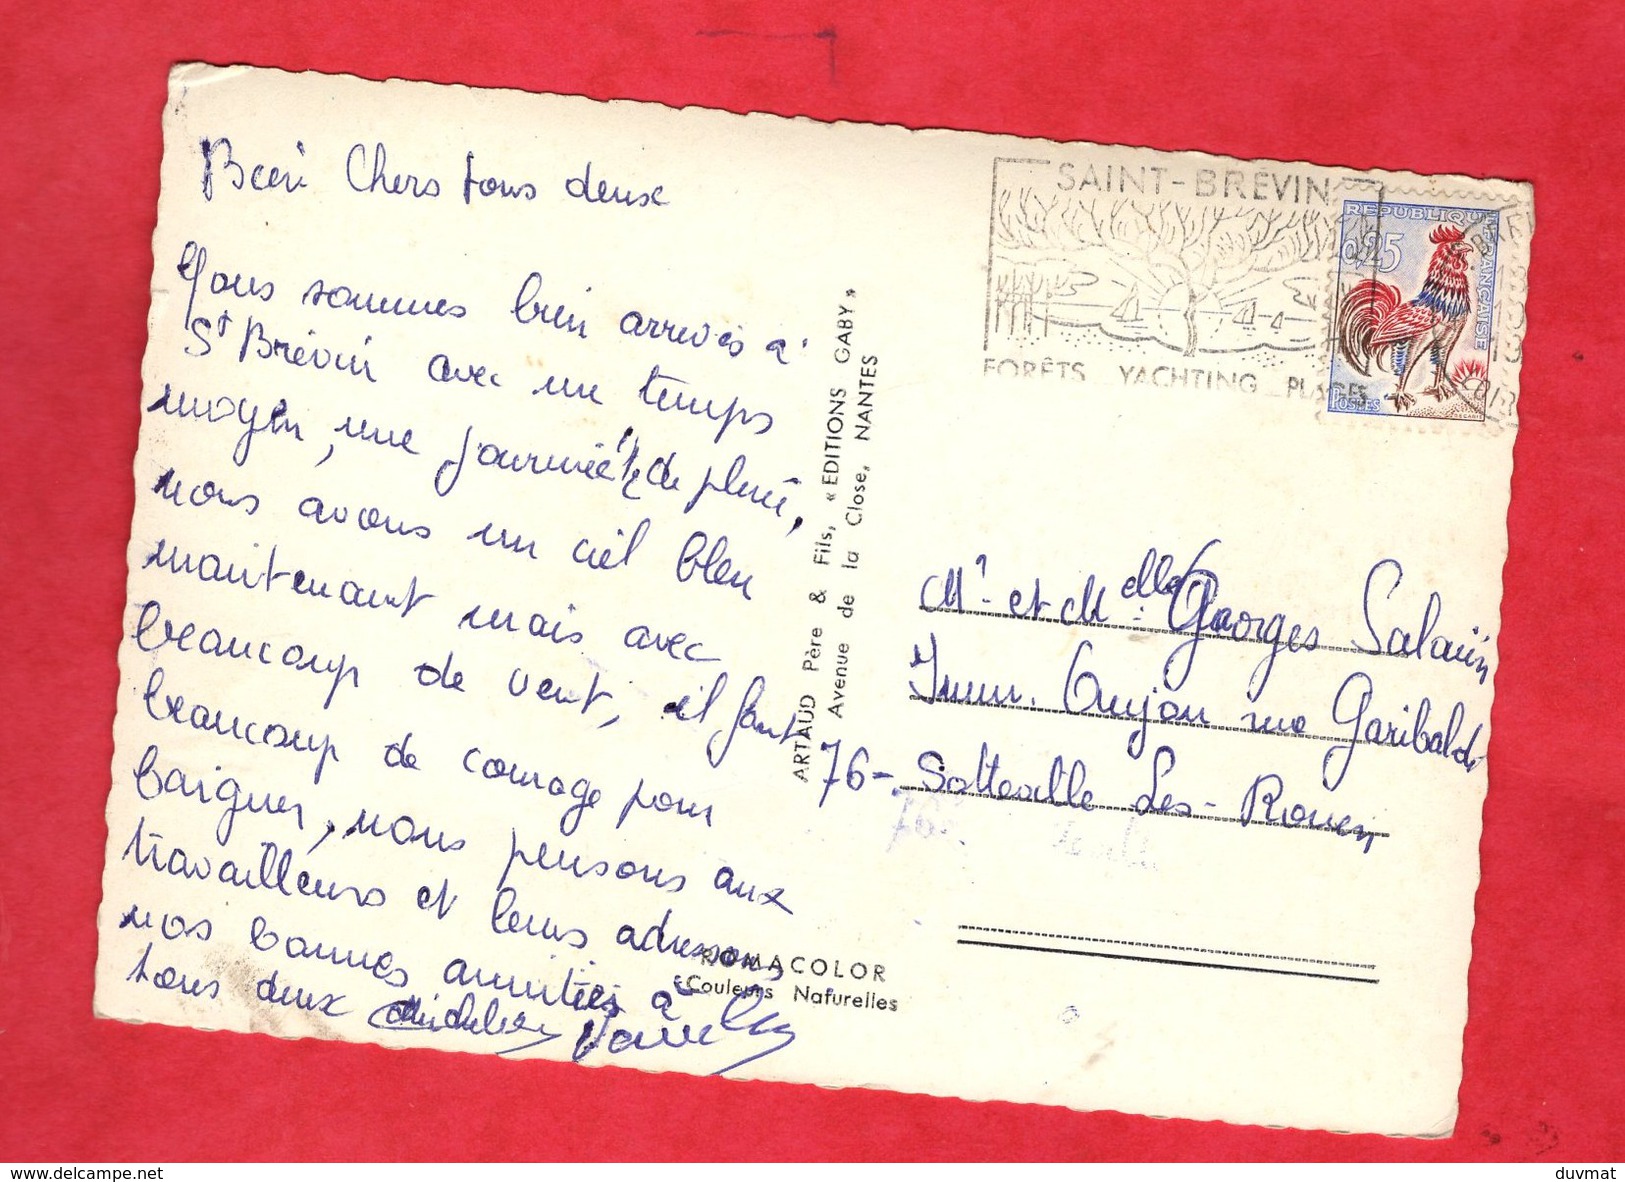 Bien Chers tous deux
Nous sommes bien arrivés à
St Brévin avec un temps
moyen, une journée 1/2 de pluie,
nous avons un ciel bleu
maintenant mais avec
beaucoup de vent, il faut
beaucoup de courage pour
baigner, nous pensons aux
travailleurs et leurs adressons
nos bonnes amitiés à
tous deux
ARTAUD Père & Fils, « EDITIONS GABY »
Avenue de la Close, NANTES
ROMACOLOR
Couleurs Naturelles
SAINT-BREVIN
FORÊTS _ YACHTING _ PLAGES
REPUBLIQUE FRANÇAISE
0,25
POSTES
DECARIS
Mr. et Melle Georges Salaün
Imm. Anjou rue Garibaldi
76 - Sotteville Les-Rouen
www.delcampe.net
duvmat